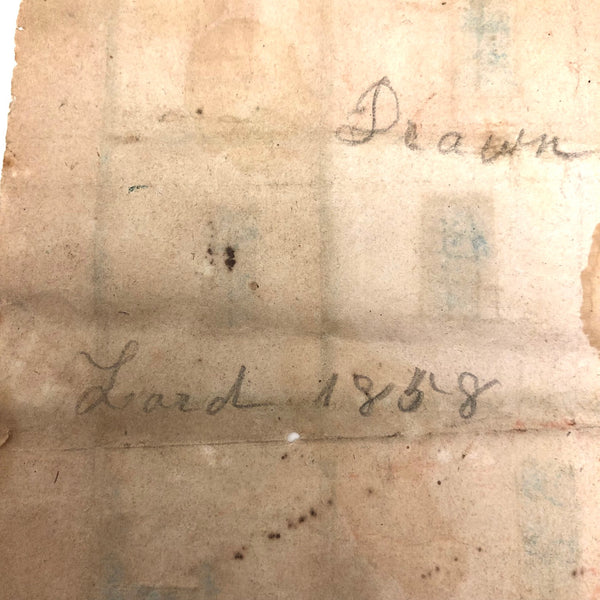 Drawn
Lord 1858